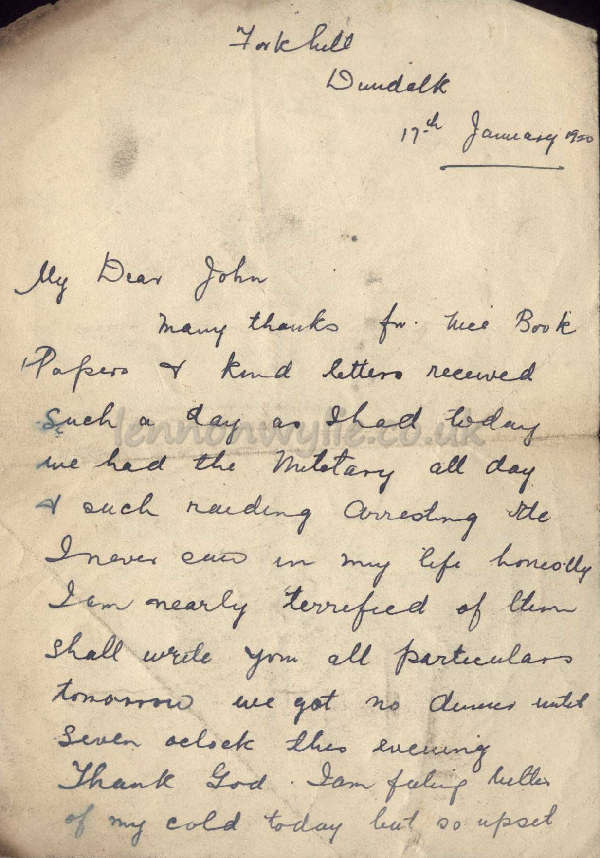 Forkhill
Dundalk
17th January 1920
My Dear John
Many thanks for nice Book
Papers & kind letters received
Such a day as I had today
lennonwylie.co.uk
we had the Miletary all day
& such raiding Arresting etc
I never saw in my life honestly
I am nearly terrefied of them
shall write you all particulars
tomorrow we got no dinner until
seven oclock this evening
Thank God. I am feeling better
of my cold today but so upset